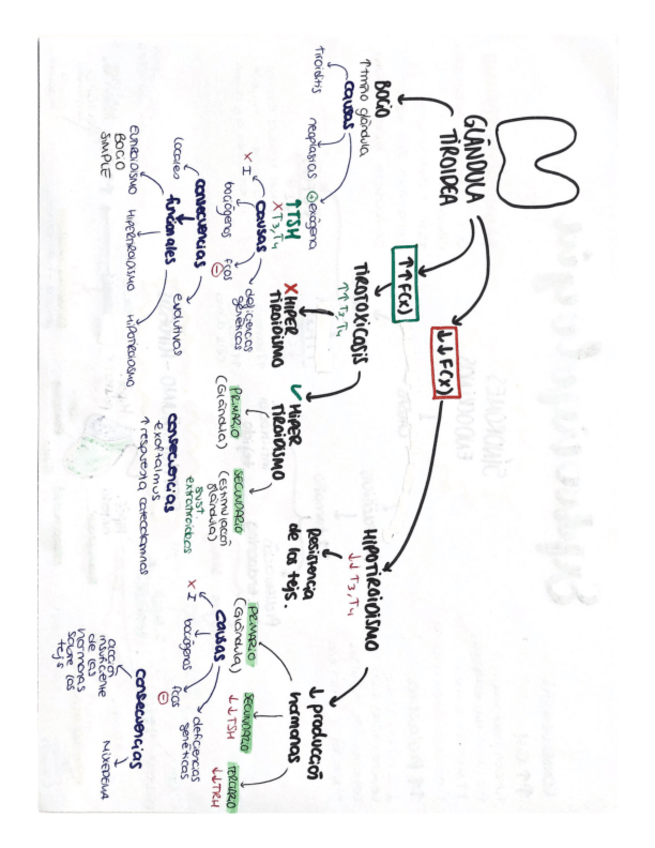 GLÁNDULA
TIROIDEA
BOCIO
↑tmño glándula
causas
tiroiditis
neoplasias
⊕exógena
↑TSH
X T3, T4
causas
X I
bociógenos
fcos
⊖
deficiencias
genéticas
consecuencias
locales
funcionales
evolutivas
EUTIROIDISMO
BOCIO
SIMPLE
HIPERTIROIDISMO
HIPOTIROIDISMO
↑↑F(x)
TIROTOXICOSIS
↑↑T3, T4
X HIPER
TIROIDISMO
✓ HIPER
TIROIDISMO
PRIMARIO
(Glándula)
SECUNDARIO
(Estimulación
glándula)
sust.
extratiroideas
consecuencias
exoftalmus
↑ respuesta catecolaminas
↓↓F(x)
HIPOTIROIDISMO
↓↓T3, T4
Resistencia
de los tejs.
↓ producción
hormonas
PRIMARIO
(Glándula)
SECUNDARIO
↓↓TSH
TERCIARIO
↓↓TRH
causas
X I
bociógenos
fcos
⊖
deficiencias
genéticas
consecuencias
acción
insuficiente
de las
hormonas
sobre los
tejs
MIXEDEMA